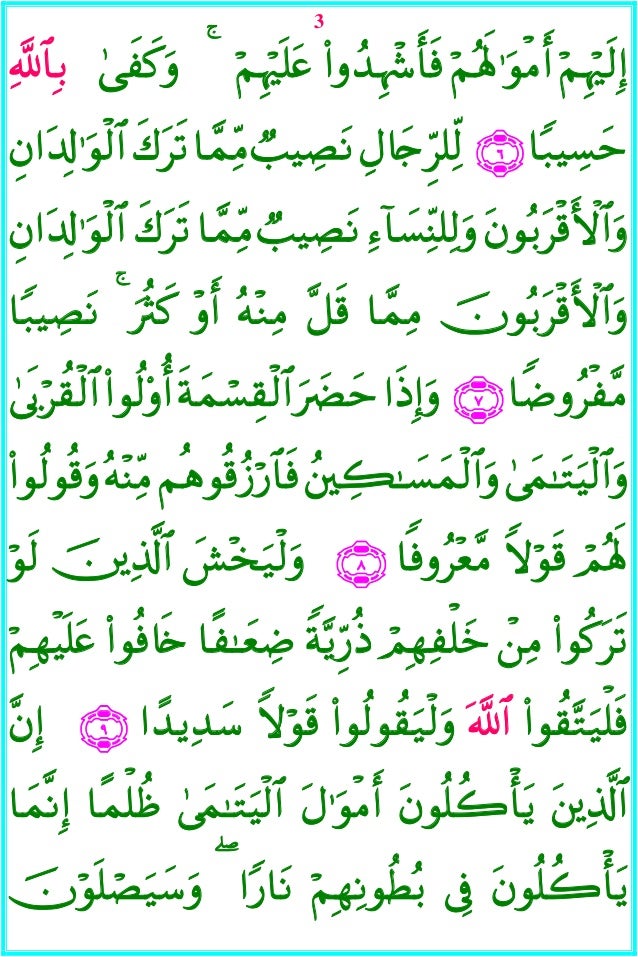 3
إِلَيْهِمْ أَمْوَٰلَهُمْ فَأَشْهِدُوا۟ عَلَيْهِمْ ۚ وَكَفَىٰ بِٱللَّهِ
حَسِيبًا ٦ لِّلرِّجَالِ نَصِيبٌ مِّمَّا تَرَكَ ٱلْوَٰلِدَانِ
وَٱلْأَقْرَبُونَ وَلِلنِّسَآءِ نَصِيبٌ مِّمَّا تَرَكَ ٱلْوَٰلِدَانِ
وَٱلْأَقْرَبُونَ مِمَّا قَلَّ مِنْهُ أَوْ كَثُرَ ۚ نَصِيبًا
مَّفْرُوضًا ٧ وَإِذَا حَضَرَ ٱلْقِسْمَةَ أُو۟لُوا۟ ٱلْقُرْبَىٰ
وَٱلْيَتَـٰمَىٰ وَٱلْمَسَـٰكِينُ فَٱرْزُقُوهُم مِّنْهُ وَقُولُوا۟
لَهُمْ قَوْلًا مَّعْرُوفًا ٨ وَلْيَخْشَ ٱلَّذِينَ لَوْ
تَرَكُوا۟ مِنْ خَلْفِهِمْ ذُرِّيَّةً ضِعَـٰفًا خَافُوا۟ عَلَيْهِمْ
فَلْيَتَّقُوا۟ ٱللَّهَ وَلْيَقُولُوا۟ قَوْلًا سَدِيدًا ٩ إِنَّ
ٱلَّذِينَ يَأْكُلُونَ أَمْوَٰلَ ٱلْيَتَـٰمَىٰ ظُلْمًا إِنَّمَا
يَأْكُلُونَ فِى بُطُونِهِمْ نَارًا ۖ وَسَيَصْلَوْنَ